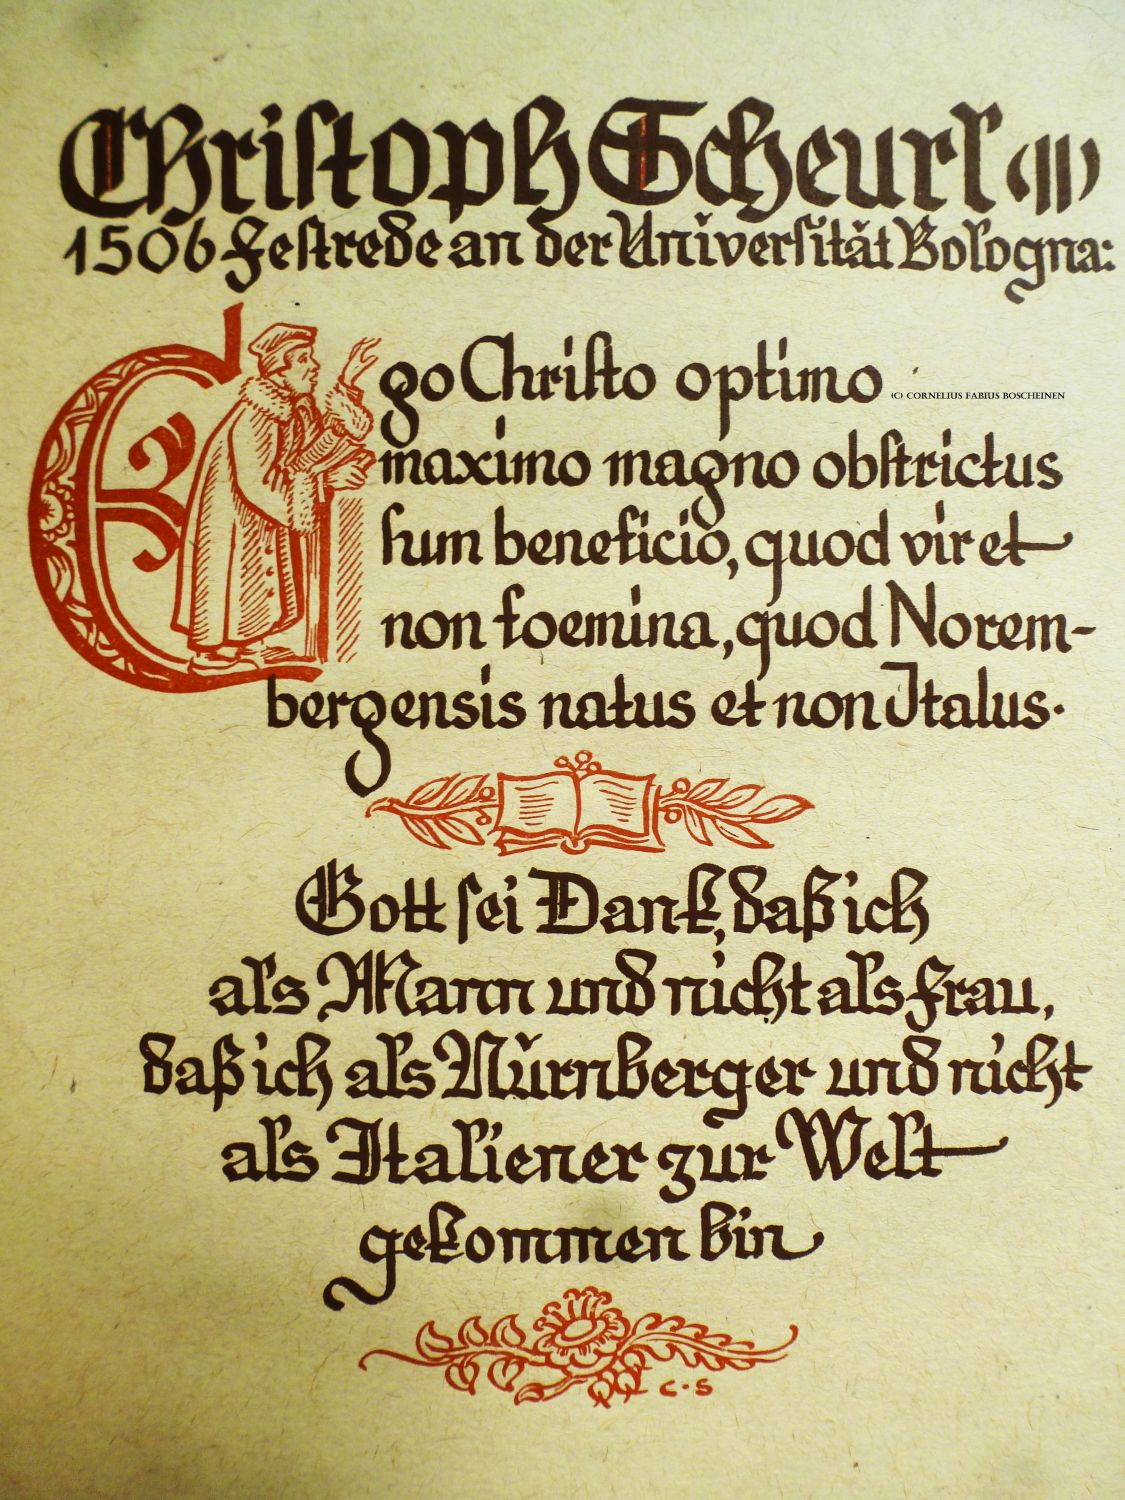 Christoph Scheurl (II)
1506 Festrede an der Universität Bologna:
Ego Christo optimo
(C) CORNELIUS FABIUS BOSCHEINEN
maximo magno obstrictus
sum beneficio, quod vir et
non foemina, quod Norem-
bergensis natus et non Italus.
Gott sei Dank, daß ich
als Mann und nicht als Frau,
daß ich als Nürnberger und nicht
als Italiener zur Welt
gekommen bin
C.S